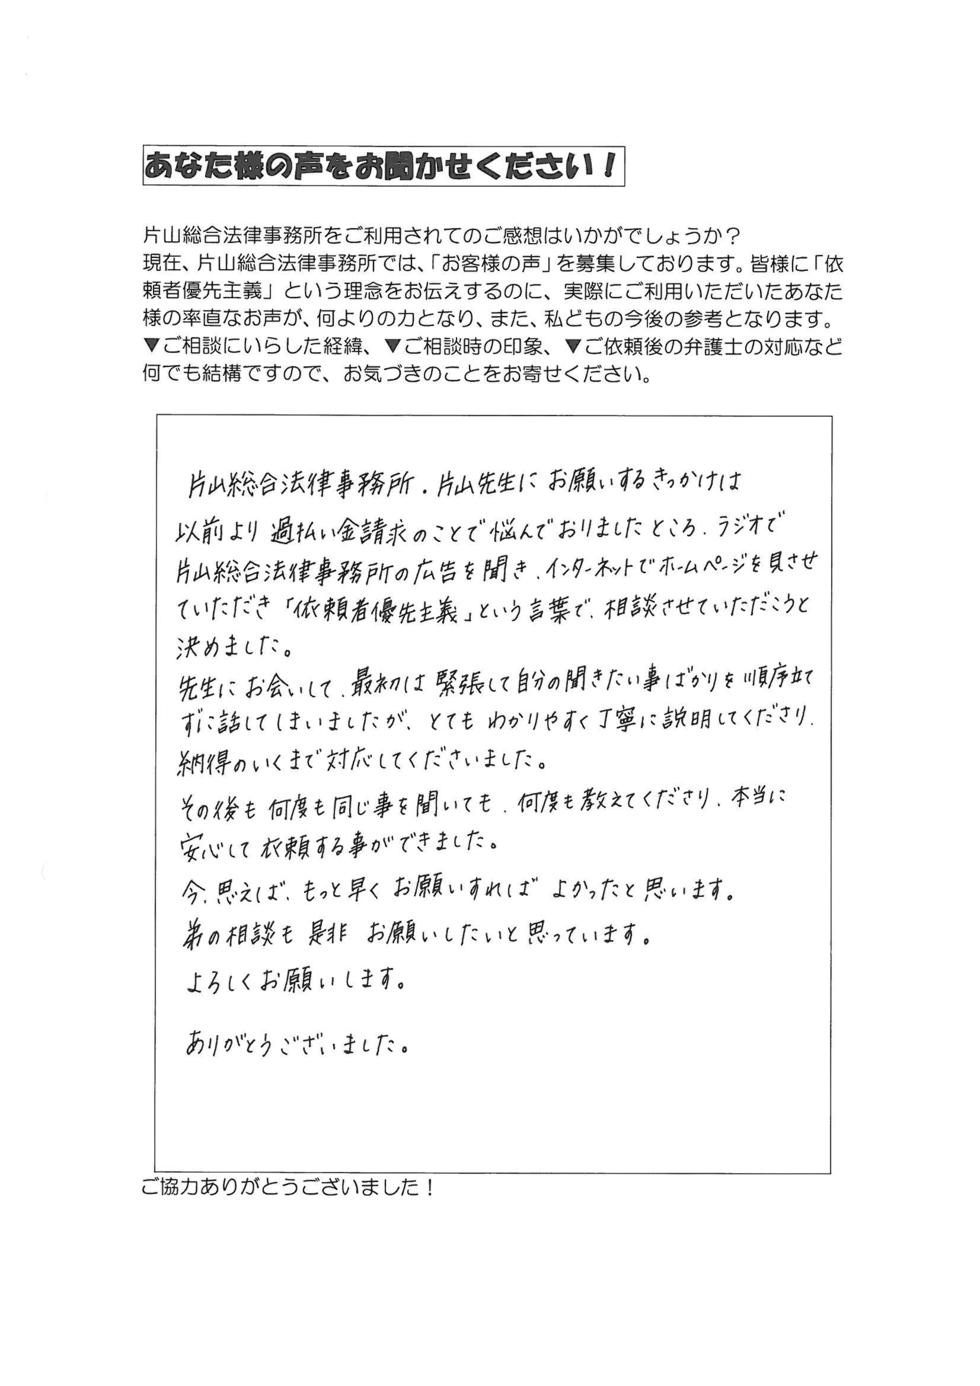 あなた様の声をお聞かせください！
片山総合法律事務所をご利用されてのご感想はいかがでしょうか？
現在、片山総合法律事務所では、「お客様の声」を募集しております。皆様に「依
頼者優先主義」という理念をお伝えするのに、実際にご利用いただいたあなた
様の率直なお声が、何よりの力となり、また、私どもの今後の参考となります。
▼ご相談にいらした経緯、▼ご相談時の印象、▼ご依頼後の弁護士の対応など
何でも結構ですので、お気づきのことをお寄せください。
片山総合法律事務所、片山先生にお願いするきっかけは
以前より過払い金請求のことで悩んでおりましたところ、ラジオで
片山総合法律事務所の広告を聞き、インターネットでホームページを見させ
ていただき「依頼者優先主義」という言葉で、相談させていただこうと
決めました。
先生にお会いして、最初は緊張して自分の聞きたい事ばかりを順序立て
ずに話してしまいましたが、とてもわかりやすく丁寧に説明してくださり、
納得のいくまで対応してくださいました。
その後も何度も同じ事を聞いても、何度も教えてくださり、本当に
安心して依頼する事ができました。
今、思えば、もっと早くお願いすればよかったと思います。
弟の相談も是非お願いしたいと思っています。
よろしくお願いします。
ありがとうございました。
ご協力ありがとうございました！